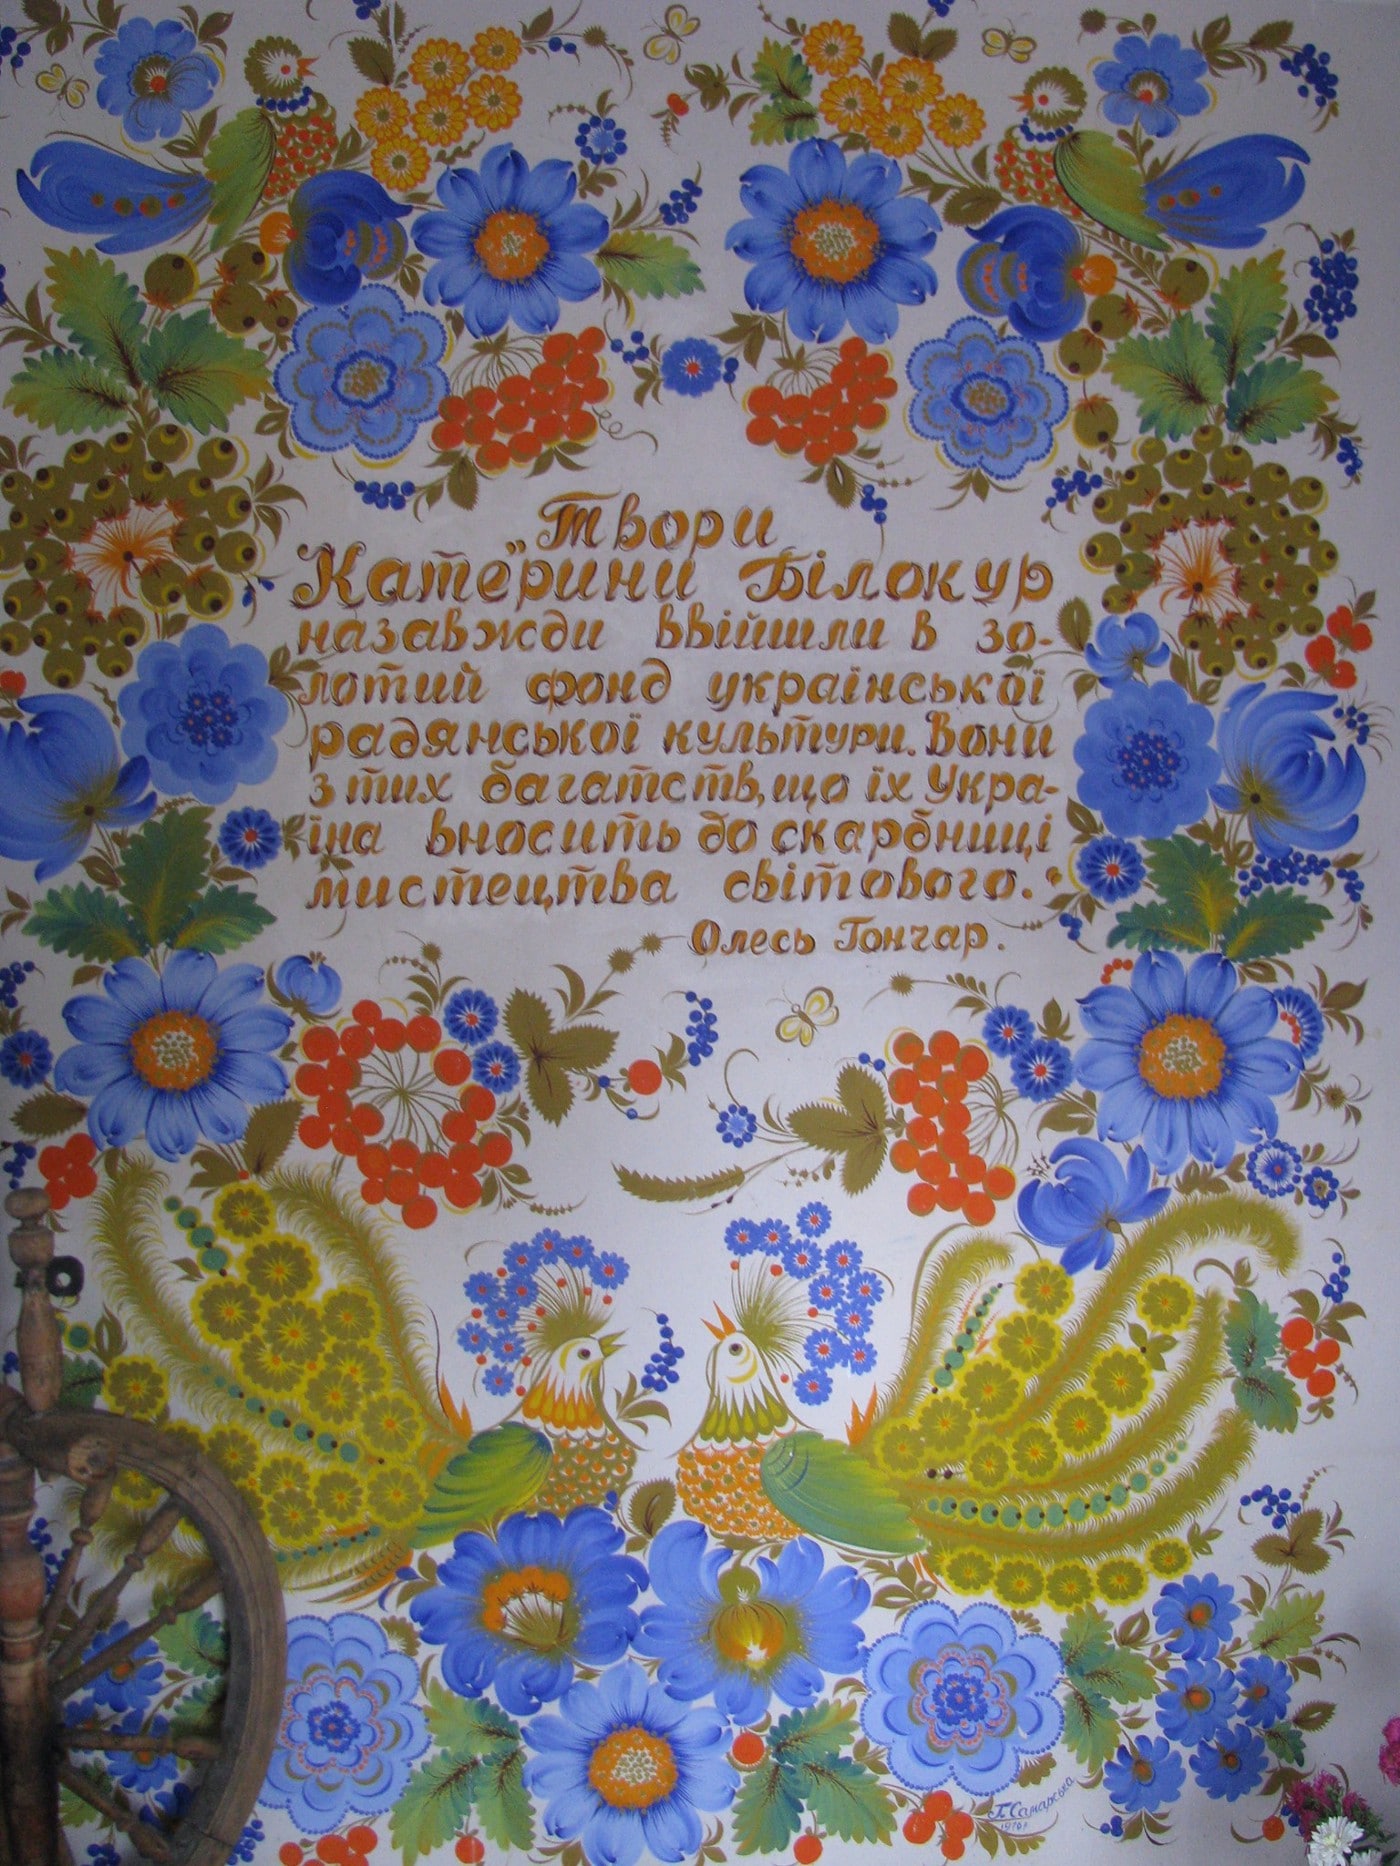 „Твори
Катерини Білокур
назавжди ввійшли в зо-
лотий фонд української
радянської культури. Вони
з тих багатств, що їх Укра-
їна вносить до скарбниці
мистецтва світового."
Олесь Гончар.
Г. Самарська